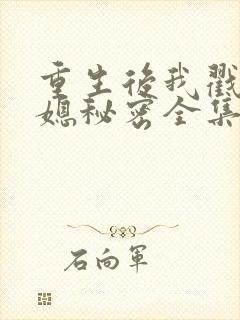 重生后我戳
媳秘密全集
石向军